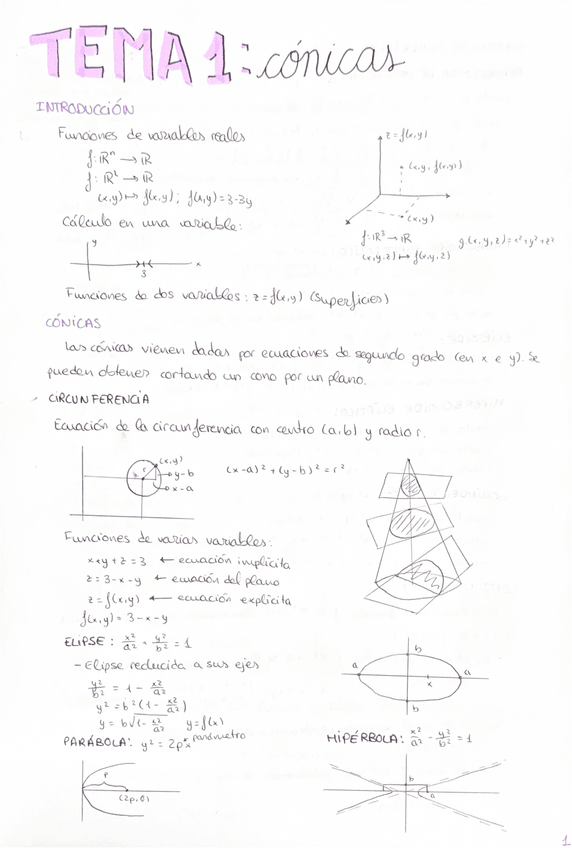 TEMA 1: cónicas
INTRODUCCIÓN
Funciones de variables reales
f: ℝⁿ → ℝ
f: ℝ² → ℝ
(x,y) ↦ f(x,y); f(x,y) = 3-3y
z = f(x,y)
(x,y, f(x,y))
(x,y)
Cálculo en una variable:
y
x
3
f: ℝ³ → ℝ
(x,y,z) ↦ f(x,y,z)
g(x,y,z) = x²+y²+z²
Funciones de dos variables: z = f(x,y) (superficies)
CÓNICAS
Las cónicas vienen dadas por ecuaciones de segundo grado (en x e y). Se
pueden obtener cortando un cono por un plano.
CIRCUNFERENCIA
Ecuación de la circunferencia con centro (a,b) y radio r.
(x,y)
r
y-b
x-a
(x-a)² + (y-b)² = r²
Funciones de varias variables:
x+y+z = 3 ← ecuación implícita
z = 3-x-y ← ecuación del plano
z = f(x,y) ← ecuación explícita
f(x,y) = 3-x-y
ELIPSE: x²/a² + y²/b² = 1
- Elipse reducida a sus ejes
y²/b² = 1 - x²/a²
y² = b²(1 - x²/a²)
y = b√(1 - x²/a²) y = f(x)
b
a
a
x
b
PARÁBOLA: y² = 2px parámetro
P
(2p,0)
HIPÉRBOLA: x²/a² - y²/b² = 1
b
a
1